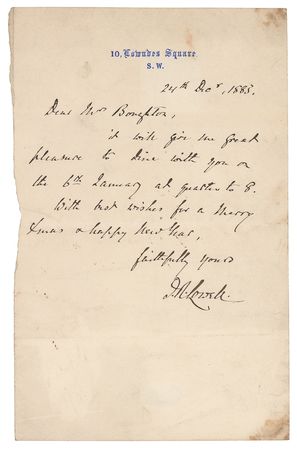 10, Lowndes Square.
S. W.
24th Decr, 1885.
Dear Mrs Boughton,
it will give me great
pleasure to dine with you on
the 6th January at quarter to 8.
With best wishes for a Merry
Xmas & happy New Year,
faithfully yours
J. R. Lowell.